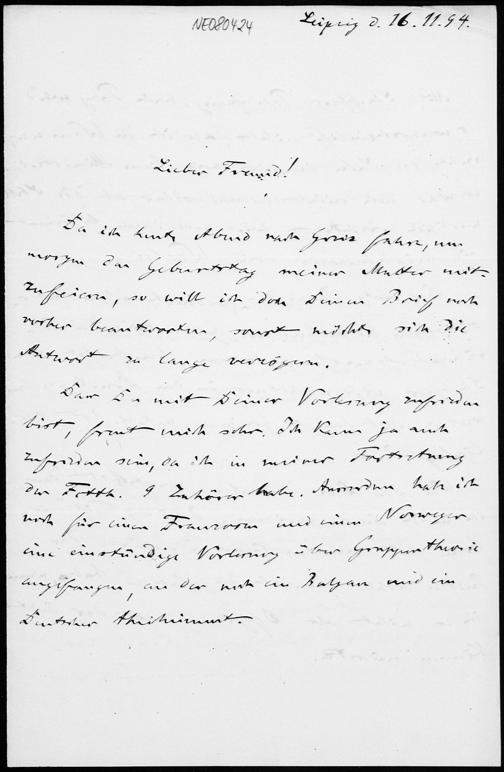 NE080424
Leipzig d. 16.11.94.
Lieber Freund!
Da ich heute Abend nach Greiz fahre, um
morgen den Geburtstag meiner Mutter mit-
zufeiern, so will ich doch Deinen Brief noch
vorher beantworten, sonst möchte sich die
Antwort zu lange verzögern.
Dass Du mit Deiner Vorlesung zufrieden
bist, freut mich sehr. Ich kann ja auch
zufrieden sein, da ich in meiner Fortsetzung
der Fctth. 9 Zuhörer habe. Ausserdem habe ich
noch für einen Franzosen und einen Norweger
eine einstündige Vorlesung über Gruppentheorie
angefangen, an der noch ein Bulgare und ein
Deutscher theilnimmt.